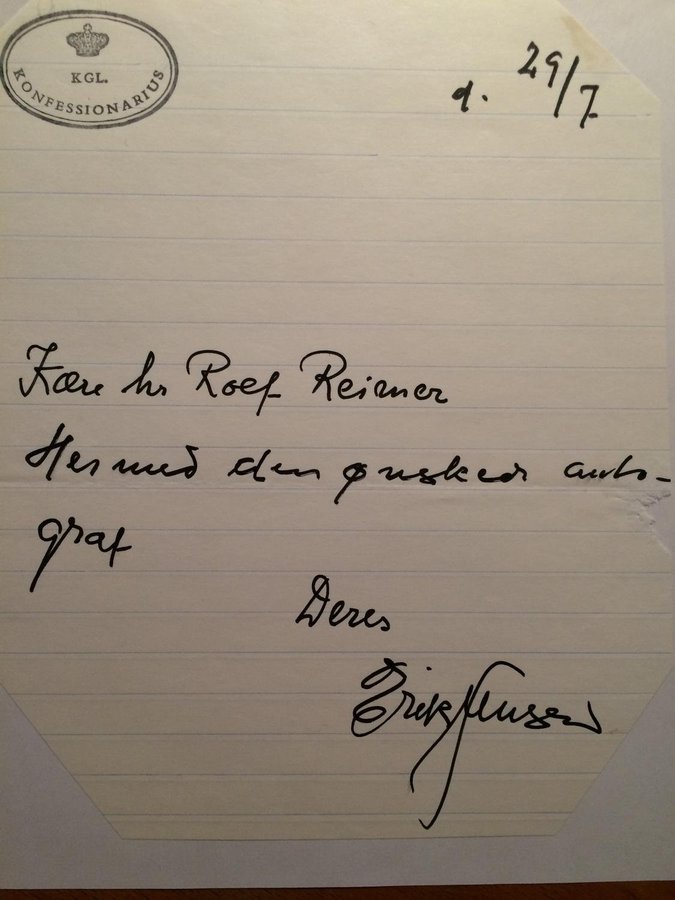 KGL.
KONFESSIONARIUS
d. 29/7.
Kære hr Roef Reimer
Hermed den ønskede auto-
graf
Deres
Erik Jensen